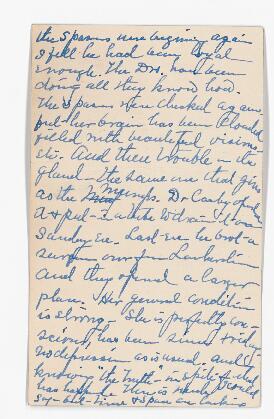 the spasms were beginning again
I felt he had been loyal
enough. The Drs. have been
doing all they know how.
The spasms were checked again
but her brain has been clouded
filled with beautiful visions
etc. And there trouble in the
gland - the same one that gives
as the Mumps. Dr Canby opened
it & put in a white to drain it
Sunday Eve. Last Eve he bro't a
surgeon over from
And they opened a larger
place. Her general condition
is strong - She is perfectly con-
scious, has been since Friday
no depression as is usual. and
knowing "the Truth" in spite of what
has happened there is nearly
say - but time & space are nothing